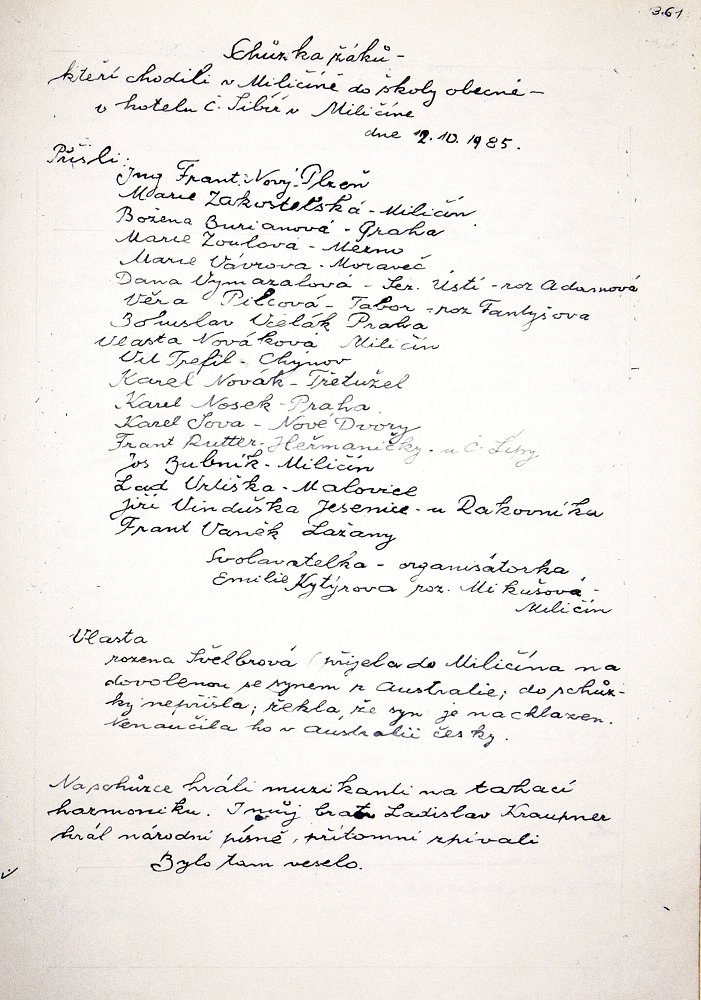 3.61
Schůzka žáků -
kteří chodili v Miličíně do školy obecné -
v hotelu Č. Sibiř v Miličíne
dne 12.10.1985.
Přišli:
Ing Frant. Nový - Plzeň
Marie Zakostelská - Miličín
Božena Burianová - Praha
Marie Zoulová - Mezno
Marie Vávrova - Moraveč
Dana Vymazalová - Sez. Ústí - roz Adamová
Věra Pilcová - Tabor - roz Fantyšova
Bohuslav Vielák Praha
Vlasta Nováková Miličín
Vít Trefil - Chýnov
Karel Novák - Třetužel
Karel Nosek - Praha
Karel Sova - Nové Dvory
Frant Rutter - Heřmaničky - u Č. Lípy
Jos Bubník - Miličín
Lad Vrtiška - Malovice
Jiří Vinduška Jesenice - u Rakovníka
Frant Vaněk Lažany
Svolavatelka - organisátorka
Emilie Kytýrova roz. Mikušová -
Miličín
Vlasta
rozena Švelbrová (přijela do Miličína na
dovolenou se synem z Australie; do schůz-
ky nepřišla; řekla, že syn je nachlazen.
Nenaučila ho v Australii česky.
Na schůzce hráli muzikanti na tahací
harmoniku. I můj bratr Ladislav Kraupner
hrál národní písně, přítomní zpívali
Bylo tam veselo.